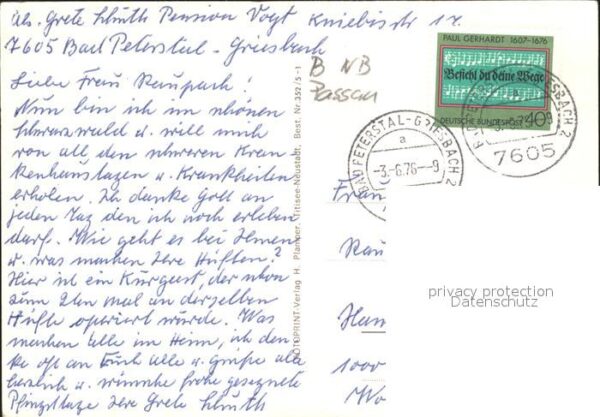 Abs. Grete Schuth Pension Vogt Kniebisstr 17.
7605 Bad Peterstal - Griesbach
Liebe Frau Raupach!
Nun bin ich im schönen
Schwarzwald u. will mich
von all den schweren Kran
kenhaustagen u. Krankheiten
erholen. Ich danke Gott an
jeden Tag den ich noch erleben
darf. Wie geht es bei Ihnen
u. was machen Ihre Hüften?
Hier ist ein Kurgast, der schon
zum 2ten mal an derselben
Hüfte operiert wurde. Was
machen alle im Heim, ich den
ke oft an Euch alle u. grüße alle
herzlich u. wünsche frohe gesegnete
Pfingsttage Ihre Grete Schuth
FOTOPRINT-Verlag H. Plamper, Titisee-Neustadt, Best. Nr. 352/5-1
B NB
Passau
PAUL GERHARDT 1607-1676
Befiehl du deine Wege
DEUTSCHE BUNDESPOST 40
BAD PETERSTAL-GRIESBACH 2
a
-3.-6.76--9
7605
Frau
Rau
Han
1000
Wo
privacy protection
Datenschutz